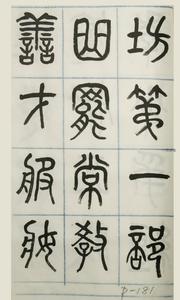 坊第一部
曲罷常教
善才服妝
P-181